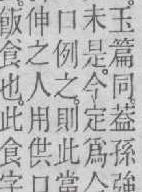 玉篇同。葢孫強
末是。今定爲今
口例之。則此當
伸之人用供口
飯食也。此食字